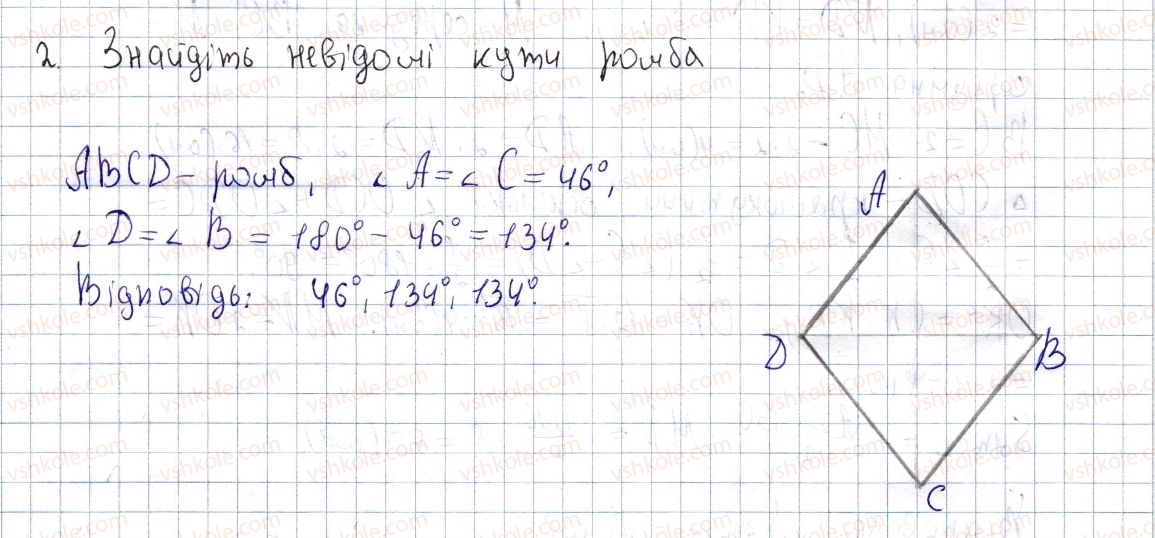 2. Знайдіть невідомі кути ромба
ABCD – ромб, ∠ A = ∠ C = 46°,
∠ D = ∠ B = 180° – 46° = 134°.
Відповідь: 46°, 134°, 134°.
A
D
B
C
vshkole.com